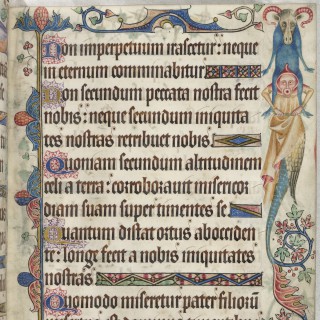 Non imperpetuum irascetur: neque
in eternum comminabitur
Non secundum peccata nostra fecit
nobis: neque secundum iniquita
tes nostras retribuet nobis
Quoniam secundum altitudinem
celi a terra: coroboravit misericor
diam suam super timentes se
Quantum distat ortus ab occiden
te: longe fecit a nobis iniquitates
nostras
Quomodo miseretur pater filiorū